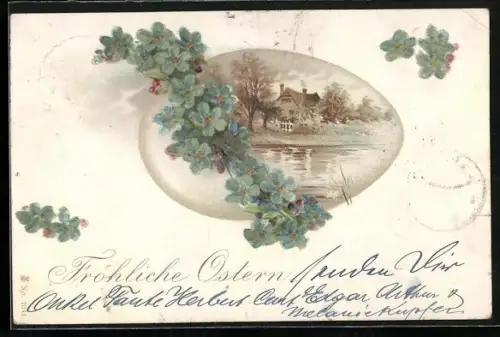 Fröhliche Ostern senden Dir
Onkel Tante Herbert Curt Edgar Arthur u
Melanie Kupfer